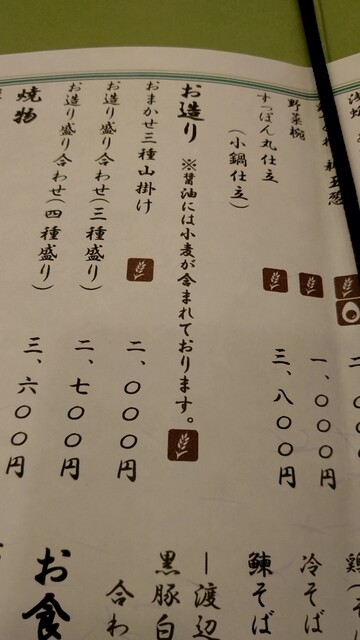 野菜椀
一、〇〇〇円
すっぽん丸仕立
(小鍋仕立)
三、八〇〇円
お造り ※醤油には小麦が含まれております。
おまかせ三種山掛け
二、〇〇〇円
お造り盛り合わせ(三種盛り)
二、七〇〇円
お造り盛り合わせ(四種盛り)
三、六〇〇円
焼物
冷そば
鰊そば
渡辺
黒豚白
合わ
お食